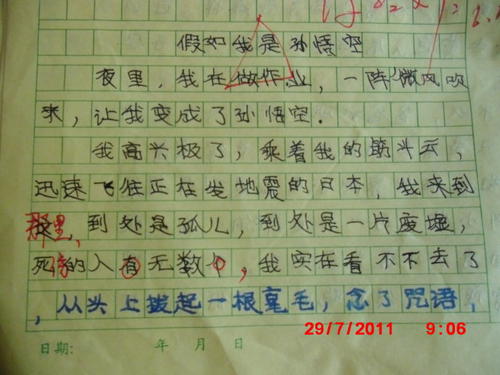 假如我是孙悟空
夜里，我在做作业，一阵微风吹
来，让我变成了孙悟空．
我高兴极了，乘着我的筋斗云，
迅速飞往正在发地震的日本，我来到
那里，到处是孤儿，到处是一片废墟，
死的人有无数，我实在看不不去了
，从头上拔起一根毫毛，念了咒语，
29/7/2011 9:06
日期： 年 月 日